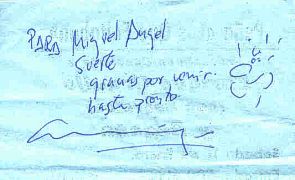 PARA Miguel Angel
Suerte
gracias por venir.
hasta pronto